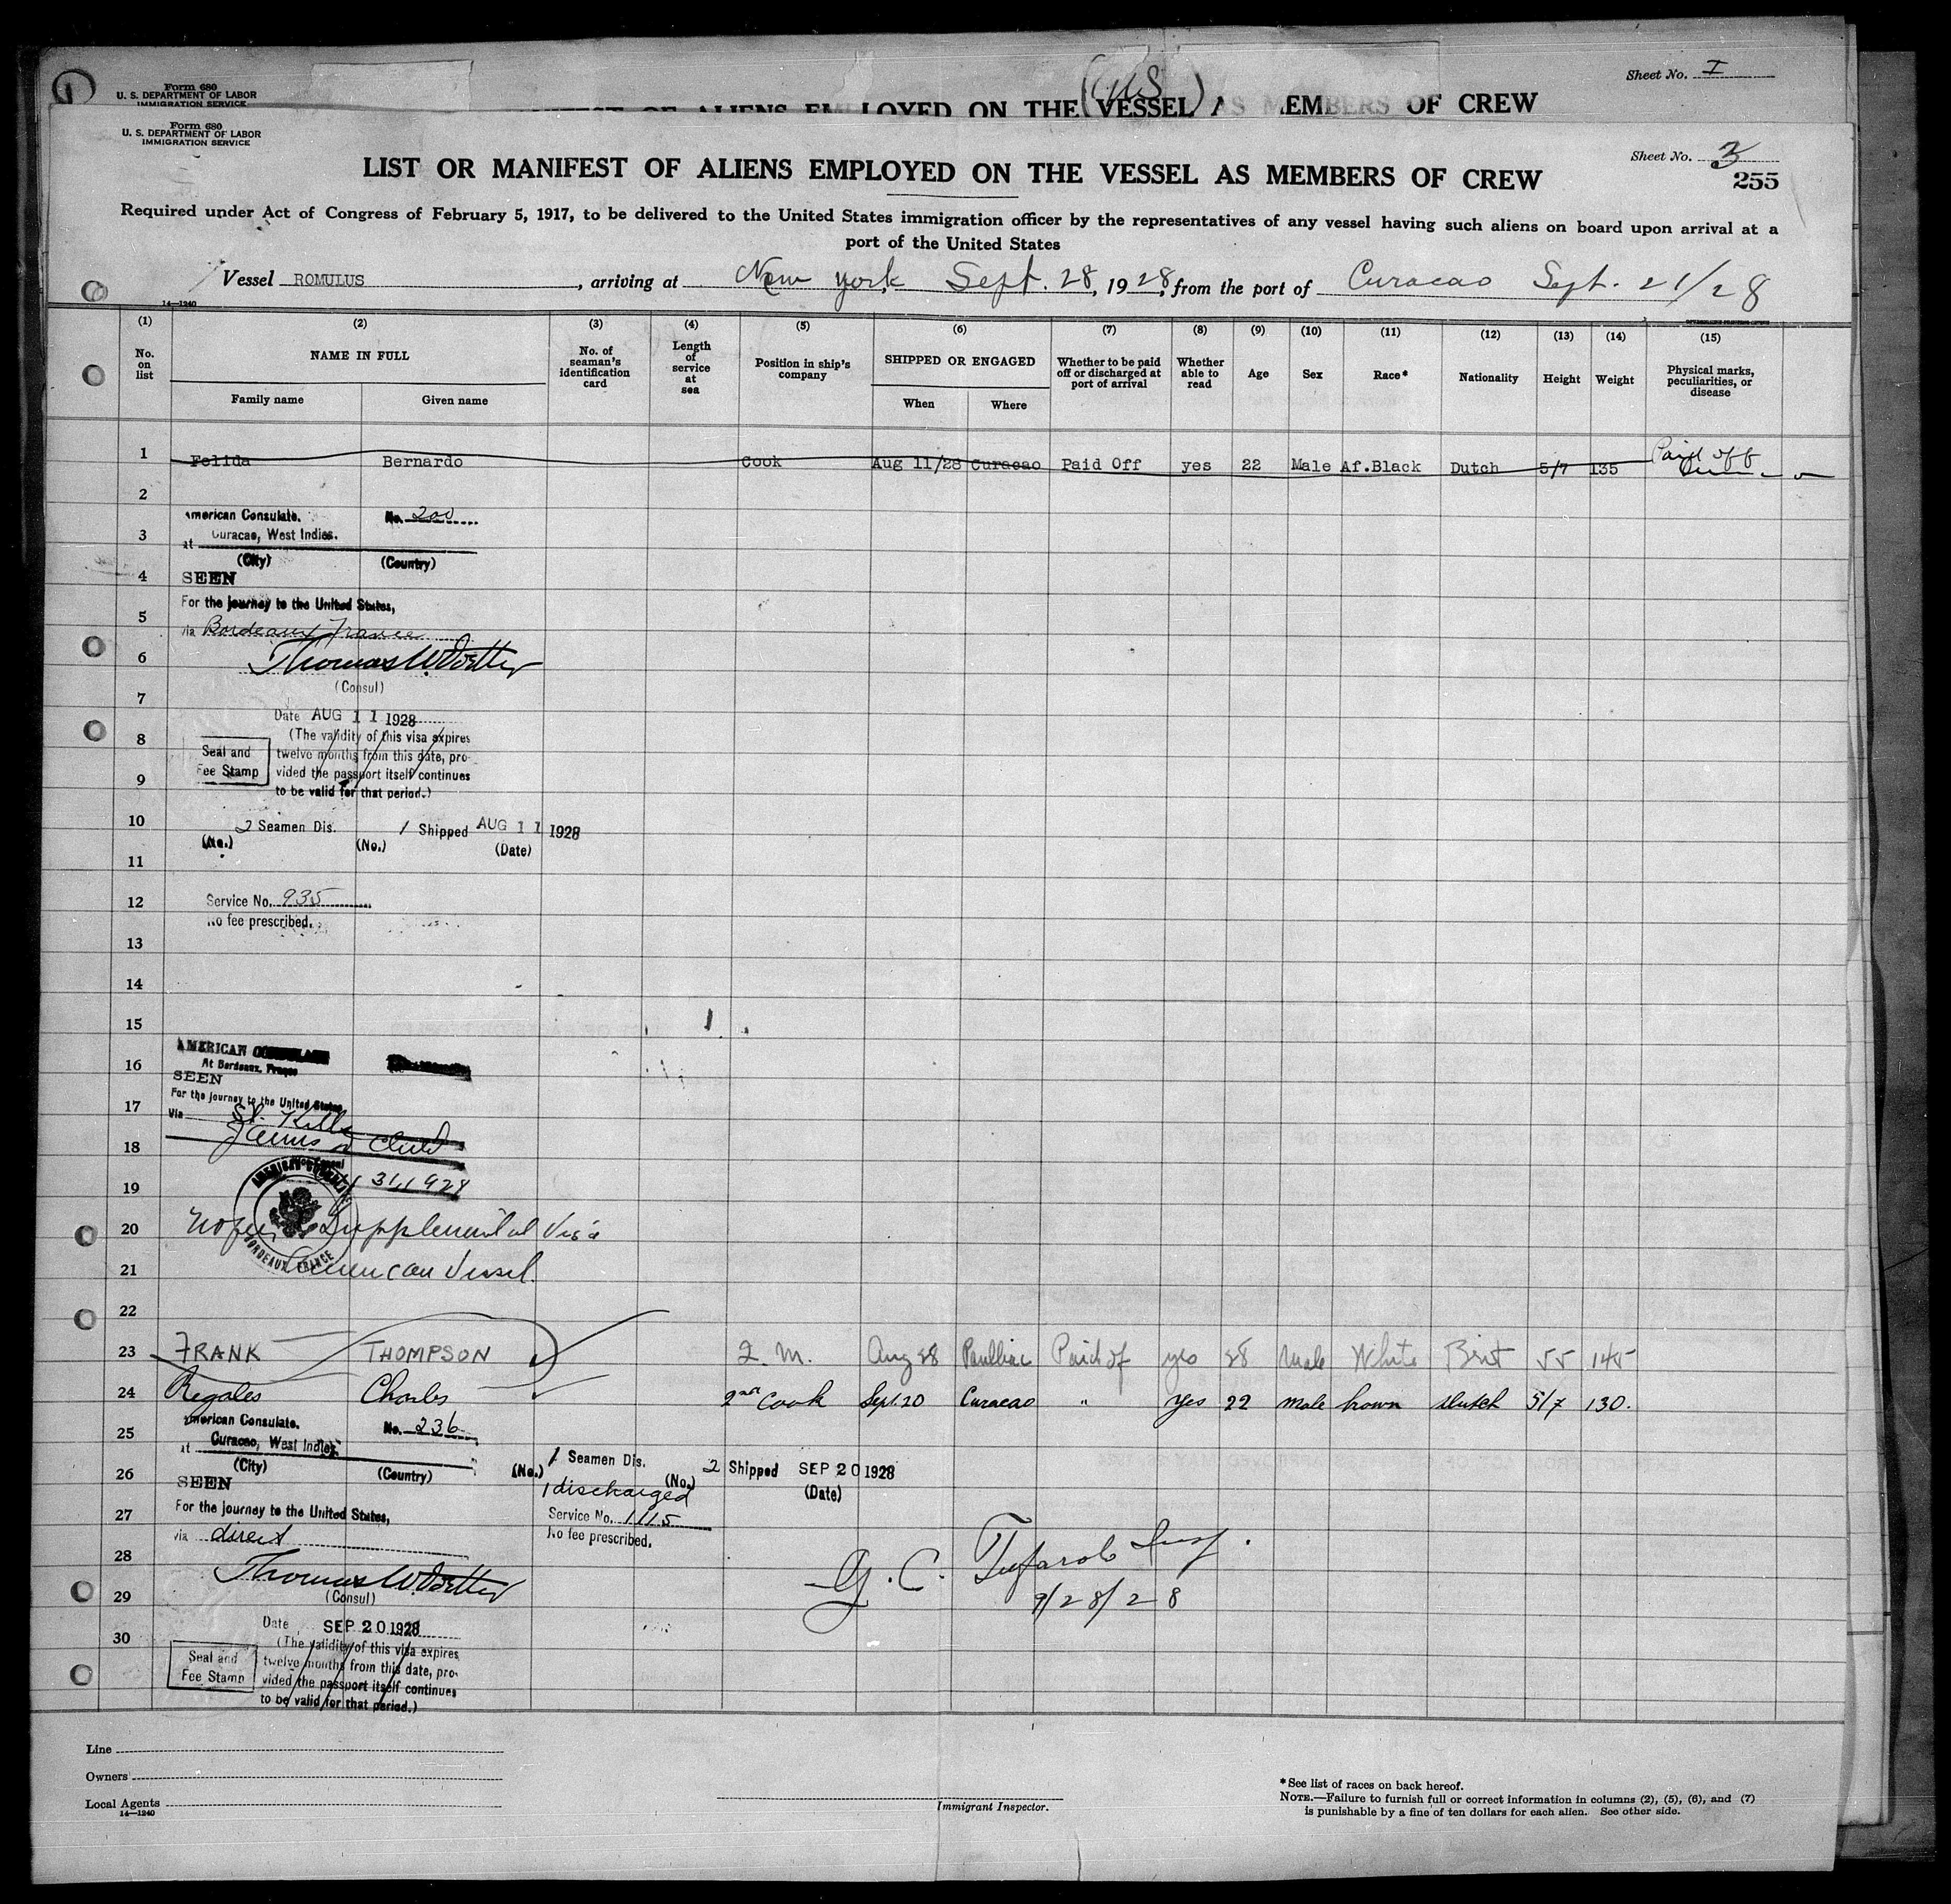 Form 680
U. S. DEPARTMENT OF LABOR
IMMIGRATION SERVICE
(US)
Sheet No. I
MANIFEST OF ALIENS EMPLOYED ON THE VESSEL AS MEMBERS OF CREW
Form 680
U. S. DEPARTMENT OF LABOR
IMMIGRATION SERVICE
Sheet No. 3
255
LIST OR MANIFEST OF ALIENS EMPLOYED ON THE VESSEL AS MEMBERS OF CREW
Required under Act of Congress of February 5, 1917, to be delivered to the United States immigration officer by the representatives of any vessel having such aliens on board upon arrival at a
port of the United States
Vessel ROMULUS, arriving at New York Sept. 28, 1928, from the port of Curacao Sept. 21/28
14—1240
(1) (2) (3) (4) (5) (6) (7) (8) (9) (10) (11) (12) (13) (14) (15)
No. on list
NAME IN FULL
Family name
Given name
No. of seaman's identification card
Length of service at sea
Position in ship's company
SHIPPED OR ENGAGED
When
Where
Whether to be paid off or discharged at port of arrival
Whether able to read
Age
Sex
Race*
Nationality
Height
Weight
Physical marks, peculiarities, or disease
1 Felida Bernardo Cook Aug 11/28 Curacao Paid Off yes 22 Male Af.Black Dutch 5/7 135 Paid off
2
American Consulate. No. 200
3
at Curacao, West Indies.
(City) (Country)
4 SEEN
For the journey to the United States,
5
via Bordeaux France
6
(Consul)
7
Date AUG 11 1928
8 (The validity of this visa expires
Seal and twelve months from this date, pro-
Fee Stamp vided the passport itself continues
9
to be valid for that period.)
10
2 Seamen Dis. 1 Shipped AUG 11 1928
(No.) (No.) (Date)
11
12 Service No. 935
No fee prescribed.
13
14
15
AMERICAN CONSULATE
16 At Bordeaux, France
SEEN
For the journey to the United States
17
Via St. Kitts
18
19 31, 1928
AMERICAN CONSULATE
BORDEAUX, FRANCE
20 No fee Supplemental Visa
21 American Vessel.
22
23 FRANK THOMPSON Q. M. Aug 28 Paulliac Paid of yes 28 Male White Brit 55 145
24 Regales Charles 2nd Cook Sept. 20 Curacao " yes 22 male brown dutch 5/7 130.
American Consulate. No. 236
25
at Curacao, West Indies.
(City) (Country)
1 Seamen Dis. 2 Shipped SEP 20 1928
(No.) (No.) (Date)
26
SEEN
1 discharged
For the journey to the United States,
27
Service No. 1115
via direct
No fee prescribed.
28
29
(Consul)
9/28/28
Date SEP 20 1928
30
(The validity of this visa expires
Seal and twelve months from this date, pro-
Fee Stamp vided the passport itself continues
to be valid for that period.)
Line
Owners
Local Agents
14—1240
Immigrant Inspector.
*See list of races on back hereof.
NOTE.—Failure to furnish full or correct information in columns (2), (5), (6), and (7)
is punishable by a fine of ten dollars for each alien. See other side.